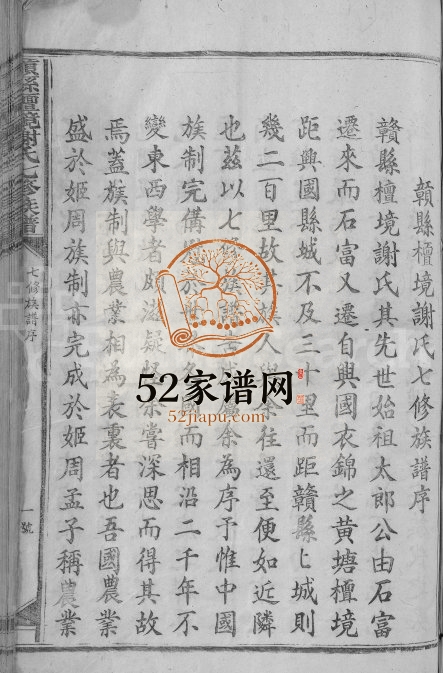 贛縣檀境謝氏七修族譜序
贛縣檀境謝氏其先世始祖太郎公由石富
遷來而石富又遷自興國衣錦之黃塘檀境
距興國縣城不及三十里而距贛縣匕城則
幾二百里故其族人與余往還至便如近隣
也茲以七修族譜 余為序予惟中國
族制完備 於 而相沿二千年不
變東西學者頗滋疑 余嘗深思而得其故
焉蓋族制與農業相為表裏者也吾國農業
盛於姬周族制亦完成於姬周孟子稱農業
贛縣檀境謝氏七修族譜
七修族譜序
一號
52家谱网
52jiapu.com